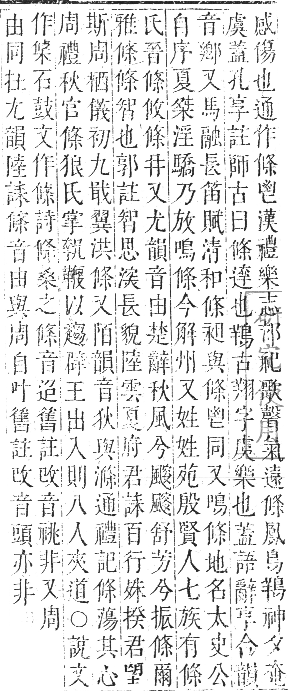 感傷也通作條鬯漢禮樂志郊祀歌聲氣遠條鳳鳥鴹神夕奄
虞蓋孔享註師古曰條達也鴹古翔字虞樂也蓋語辭享合韻
音鄕又馬融長笛賦淸和條昶與條鬯同又鳴條地名太史公
自序夏桀淫驕乃放鳴條今解州又姓姓苑殷賢人七族有條
氏晉條攸條幷又尤韻音由楚辭秋風兮飂飂舒芳兮振條爾
雅條條智也郭註智思深長貌陸雲夏府君誄百行姝揆君望
斯周栖儀初九戢翼洪條又陌韻音狄與滌通禮記條蕩其心
周禮秋官條狼氏掌執鞭以趨辟王出入則八人夾道○說文
作樤石鼓文作條詩條桑之條音迢舊註改音祧非又周
由同在尤韻陸誄條音由與周自叶舊註改音頭亦非